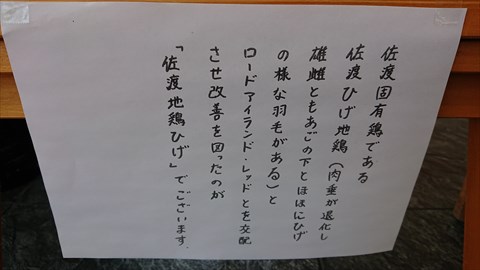 佐渡固有鶏である
佐渡ひげ地鶏(肉垂が退化し
雄雌ともあごの下とほほにひげ
の様な羽毛がある)と
ロードアイランド・レッドとを交配
させ改善を図ったのが
「佐渡地鶏ひげ」でございます。